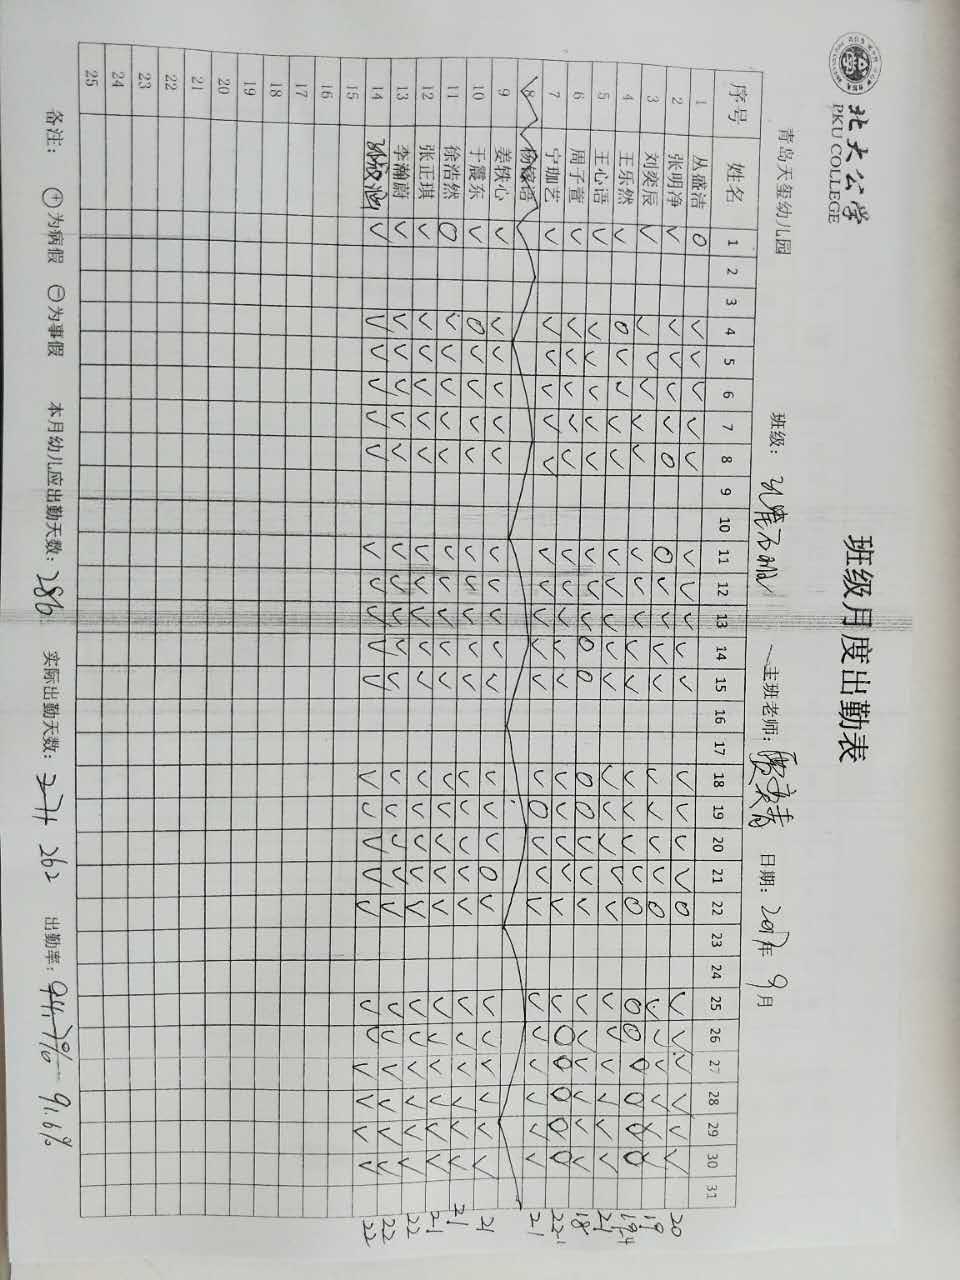 北大公学
PKU COLLEGE
班级月度出勤表
青岛天玺幼儿园 班级: 主班老师: 日期: 2017年 9月
序号 姓名 1 2 3 4 5 6 7 8 9 10 11 12 13 14 15 16 17 18 19 20 21 22 23 24 25 26 27 28 29 30 31
1 丛盛洁 20
2 张明净 19
3 刘奕辰
4 王乐然
5 王心语 21
6 周子萱 18
7 宁珈艺 21
8 杨馥语
9 姜轶心 21
10 于震东 21
11 徐浩然 21
12 张正琪 22
13 李瀚蔚 22
14 22
15
16
17
18
19
20
21
22
23
24
25
备注: ⊕为病假 ⊖为事假 本月幼儿应出勤天数: 286 实际出勤天数: 271 262 出勤率: 94.7% 91.6%